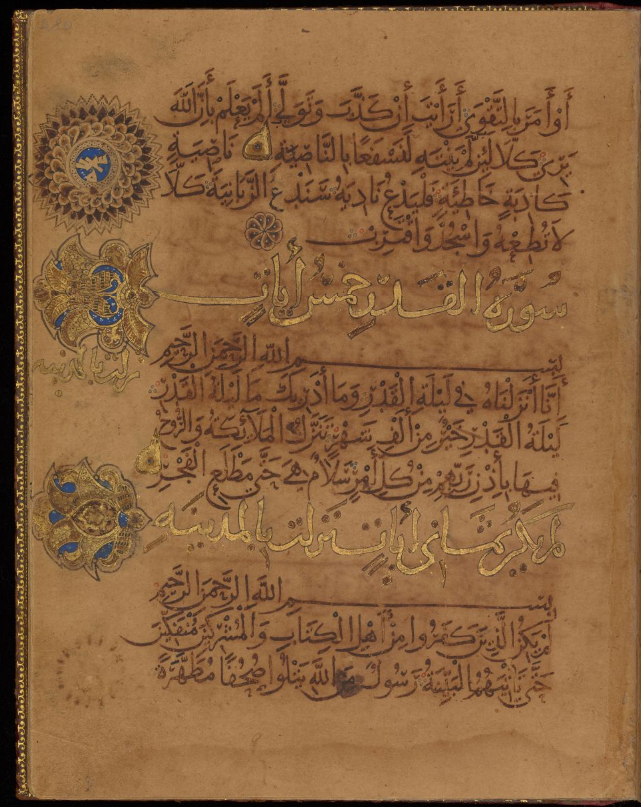 أَوْ أَمَرَ بِالتَّقْوَى أَرَأَيْتَ إِنْ كَذَّبَ وَتَوَلَّى أَلَمْ يَعْلَمْ بِأَنَّ اللَّهَ
يَرَى كَلَّا لَئِنْ لَمْ يَنْتَهِ لَنَسْفَعًا بِالنَّاصِيَةِ نَاصِيَةٍ
كَاذِبَةٍ خَاطِئَةٍ فَلْيَدْعُ نَادِيَهُ سَنَدْعُ الزَّبَانِيَةَ كَلَّا
لَا تُطِعْهُ وَاسْجُدْ وَاقْتَرِبْ
سُورَةُ القَدْرِ خَمْسُ أَيَاتٍ
بِسْمِ اللَّهِ الرَّحْمَنِ الرَّحِيمِ
إِنَّا أَنْزَلْنَاهُ فِي لَيْلَةِ الْقَدْرِ وَمَا أَدْرَيكَ مَا لَيْلَةُ الْقَدْرِ
لَيْلَةُ الْقَدْرِ خَيْرٌ مِنْ أَلْفِ شَهْرٍ تَنَزَّلُ الْمَلَائِكَةُ وَالرُّوحُ
فِيهَا بِإِذْنِ رَبِّهِمْ مِنْ كُلِّ أَمْرٍ سَلَامٌ هِيَ حَتَّى مَطْلَعِ الْفَجْرِ
نزلت بالمدينه
لم يكن ثماني ايات نزلت بالمدينه
بِسْمِ اللَّهِ الرَّحْمَنِ الرَّحِيمِ
لَمْ يَكُنِ الَّذِينَ كَفَرُوا مِنْ أَهْلِ الْكِتَابِ وَالْمُشْرِكِينَ مُنْفَكِّينَ
حَتَّى تَأْتِيَهُمُ الْبَيِّنَةُ رَسُولٌ مِنَ اللَّهِ يَتْلُوا صُحُفًا مُطَهَّرَةً